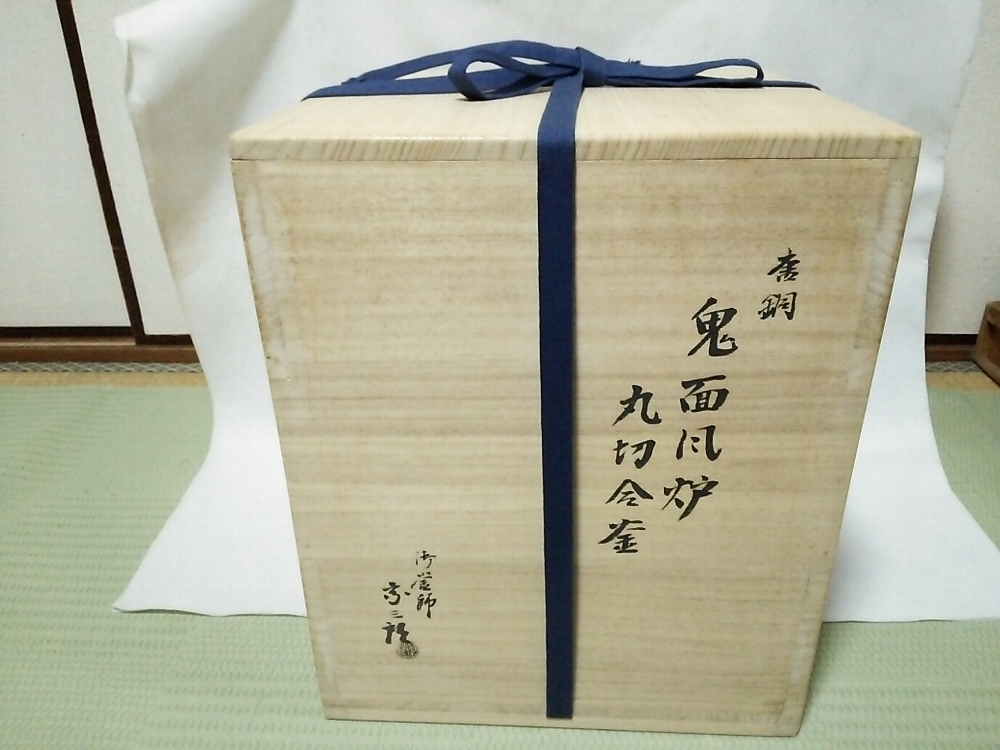 唐銅
鬼面风炉
丸切合釜
御釜師